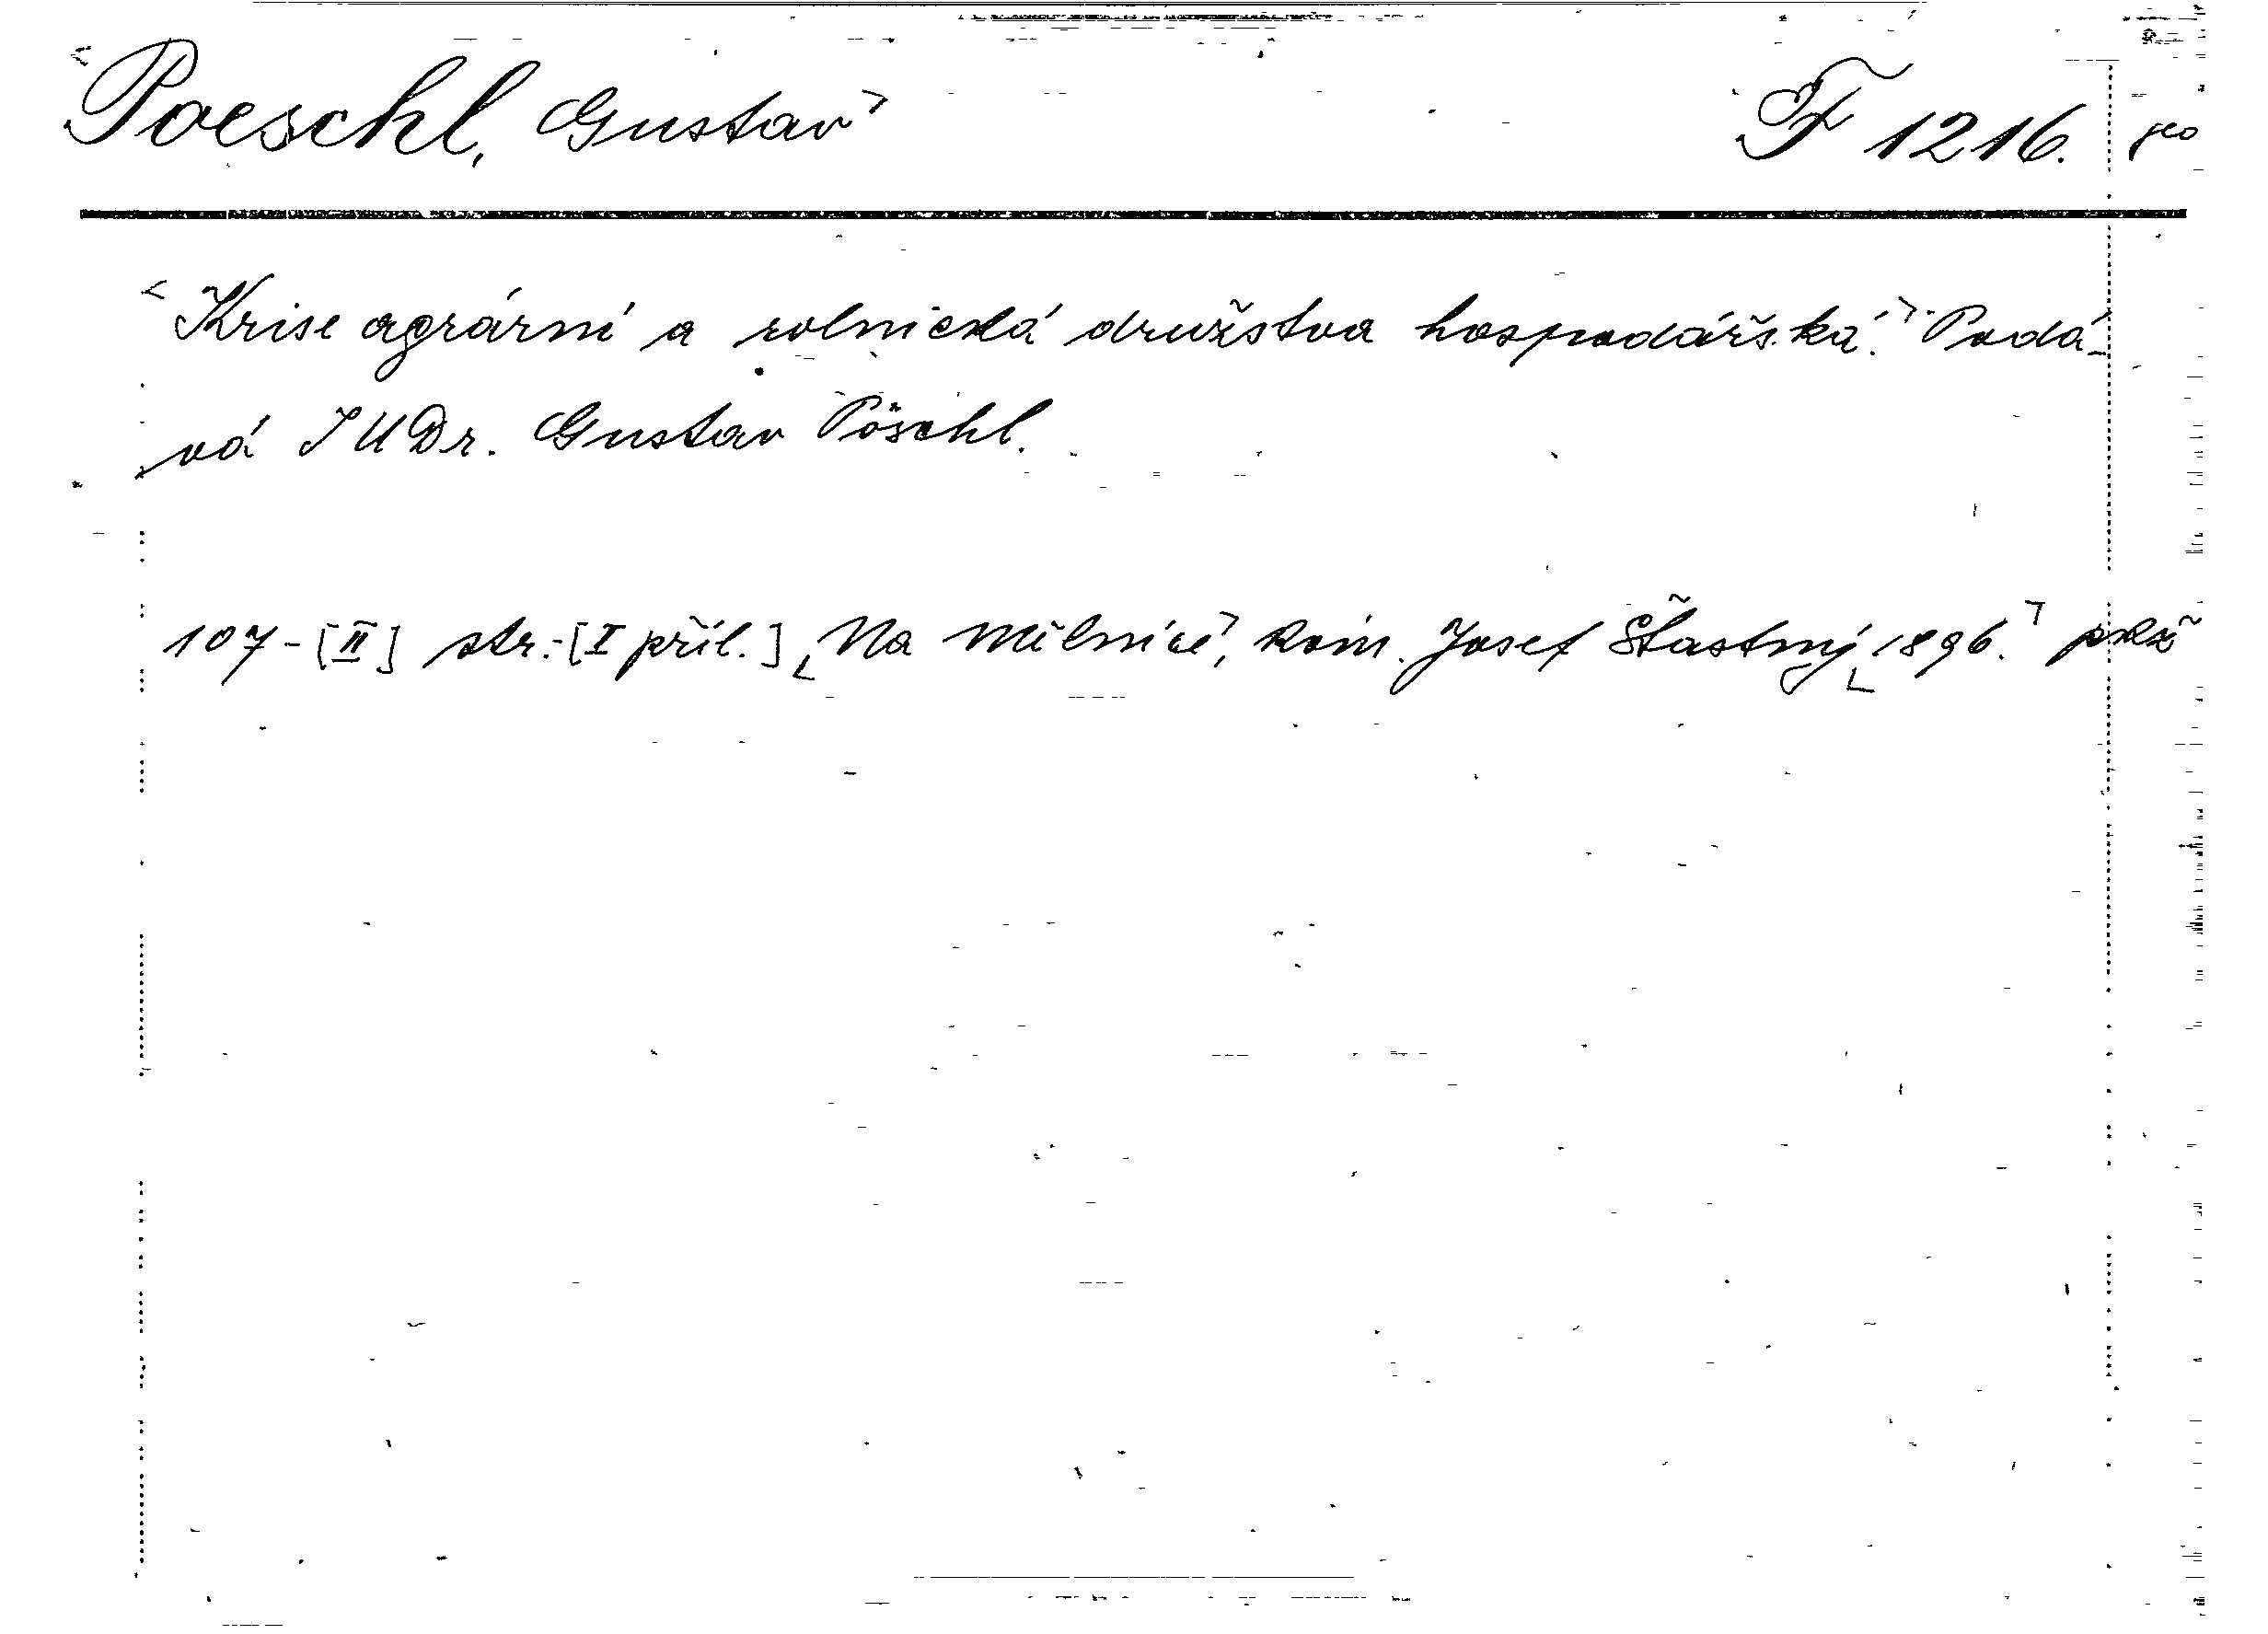 <Poeschl, Gustav> F 1216.
<Krise agrární a rolnická družstva hospodářská.> Podá-
vá JUDr. Gustav Pöschl.
107-[II] str.-[I příl.] Na Mělnice, kom. Josef Šťastný 1896.